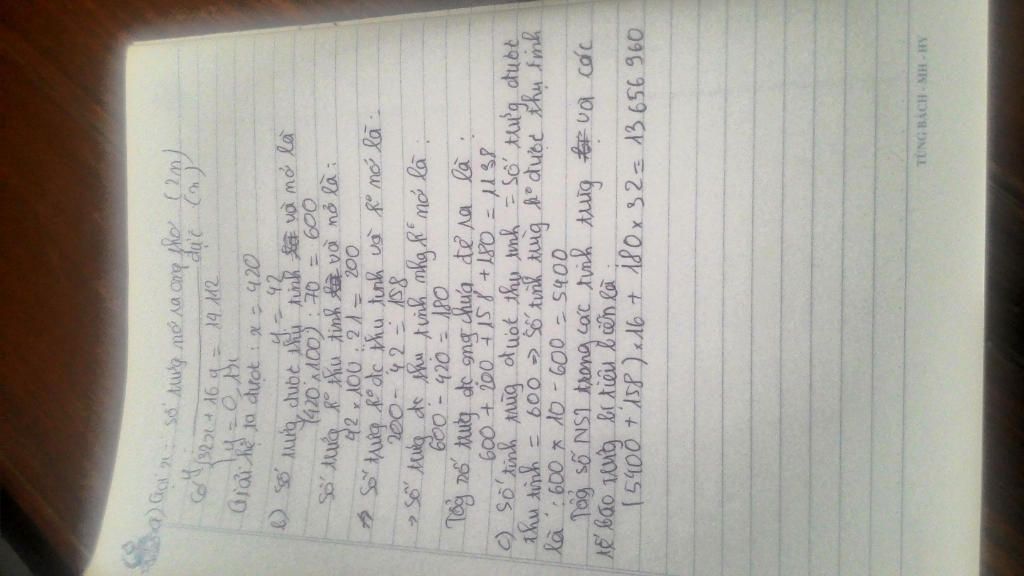 a) Gọi x: số trứng nở ra ong thợ (2n)
y: đực (n)
Có {32x + 16y = 14 112
y = 0,1x
Giải hệ ta được: x = 420
y = 42
b) Số trứng được thụ tinh và nở là
(420 x 100) : 70 = 600
Số trứng k° thụ tinh và nở là:
42 x 100 : 21 = 200
=> Số trứng k° đc thụ tinh và k° nở là:
200 - 42 = 158
-> Số trứng đc thụ tinh nhg k° nở là:
600 - 420 = 180
Tổng số trứng đc ong chúa đẻ ra là:
600 + 200 + 158 + 180 = 1138
c) Số tinh trùng được thụ tinh = Số trứng được
thụ tinh = 600 => Số tinh trùng k° được thụ tinh
là: 600 x 10 - 600 = 5400
Tổng số NST trong các tinh trùng và các
tế bào trứng bị tiêu biến là:
(5400 + 158) x 16 + 180 x 32 = 13 656 960
TÙNG BÁCH - MH - HY